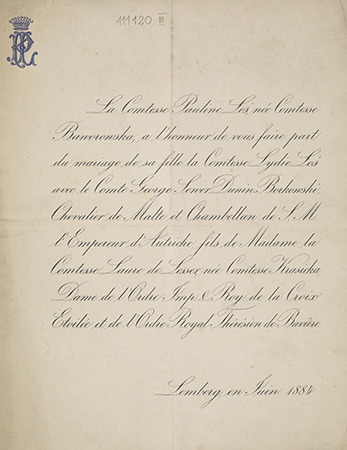 111120 III
PL
La Comtesse Pauline Łoś née Comtesse
Baworowska, a l'honneur de vous faire part
du mariage de sa fille la Comtesse Lydie Łoś
avec le Comte George Sewer Dunin Borkowski
Chevalier de Malte et Chambellan de S. M.
l'Empereur d'Autriche, fils de Madame la
Comtesse Laure de Lesser née Comtesse Krasicka
Dame de l'Ordre Imp. & Roy. de la Croix
Etoilée et de l'Ordre Royal Thérésien de Bavière
Lemberg, en Juin 1884